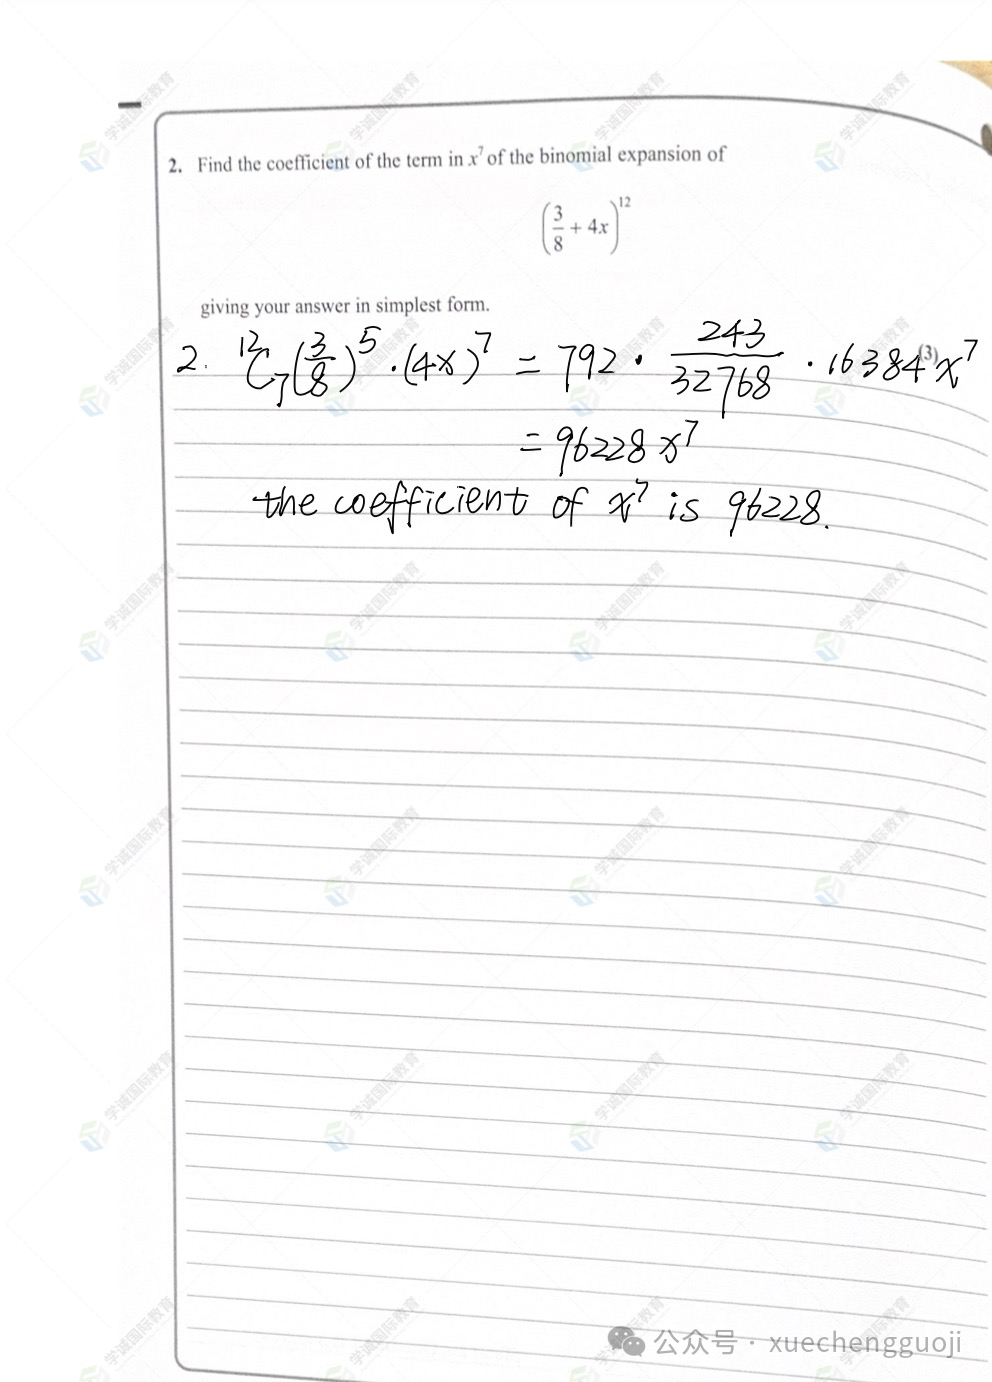 2. Find the coefficient of the term in x⁷ of the binomial expansion of
(3/8 + 4x)¹²
giving your answer in simplest form.
(3)
2. ¹²C₇(3/8)⁵ · (4x)⁷ = 792 · 243/32768 · 16384x⁷
= 96228x⁷
the coefficient of x⁷ is 96228.
学诚国际教育
公众号 · xuechengguoji